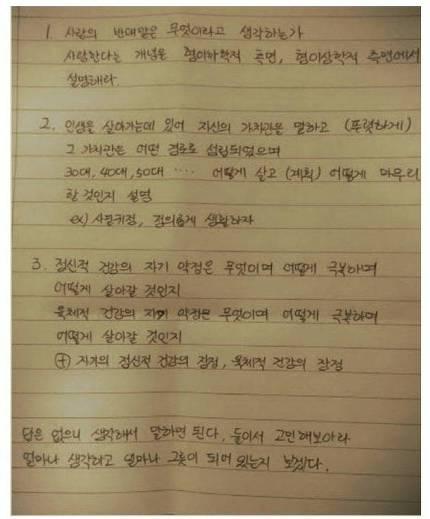 1. 사랑의 반대말은 무엇이라고 생각하는가
사랑한다는 개념을 형이하학적 측면, 형이상학적 측면에서
설명해라.
2. 인생을 살아가는데 있어 자신의 가치관을 말하고 (뚜렷하게)
그 가치관은 어떤 경로로 성립되었으며
30대, 40대, 50대 ···· 어떻게 살고 (계획) 어떻게 마무리
할 것인지 설명
ex) 사필귀정, 정의롭게 생활하자
3. 정신적 건강의 자기 약점은 무엇이며 어떻게 극복하며
어떻게 살아갈 것인지
육체적 건강의 자기 약점은 무엇이며 어떻게 극복하며
어떻게 살아갈 것인지
⊕ 자기의 정신적 건강의 장점, 육체적 건강의 장점
답은 없으니 생각해서 말하면 된다. 둘이서 고민해보아라
얼마나 생각하고 얼마나 그릇이 되어 있는지 보겠다.